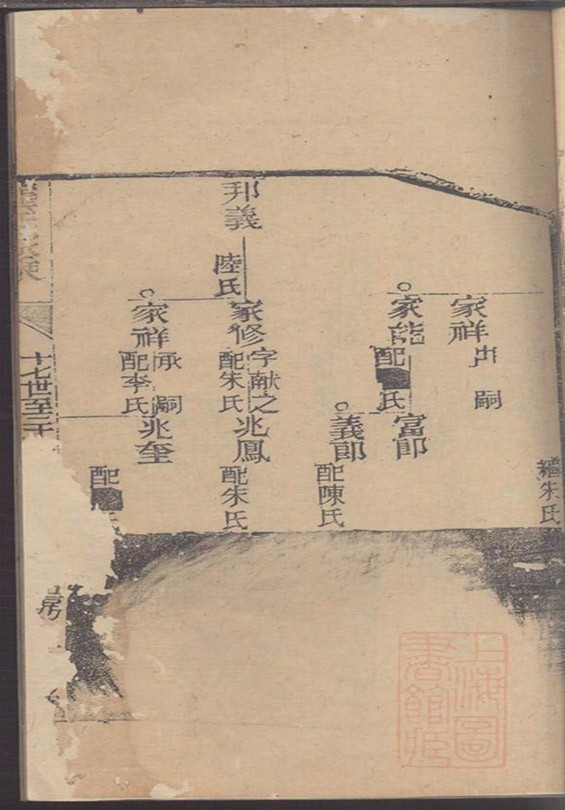 繼朱氏
家祥
出嗣
家能
配
氏
富郎
義郎
配陳氏
邦義
陸氏
家修
字献之
配朱氏
兆鳳
配朱氏
家祥
承嗣
配李氏
兆奎
配
十七世至二十
房
上海圖書館藏